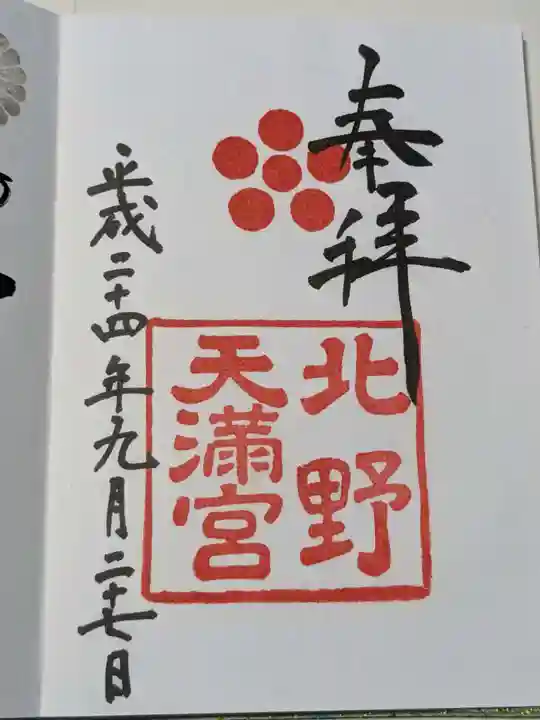 奉拝
北野
天満宮
平成二十四年九月二十七日